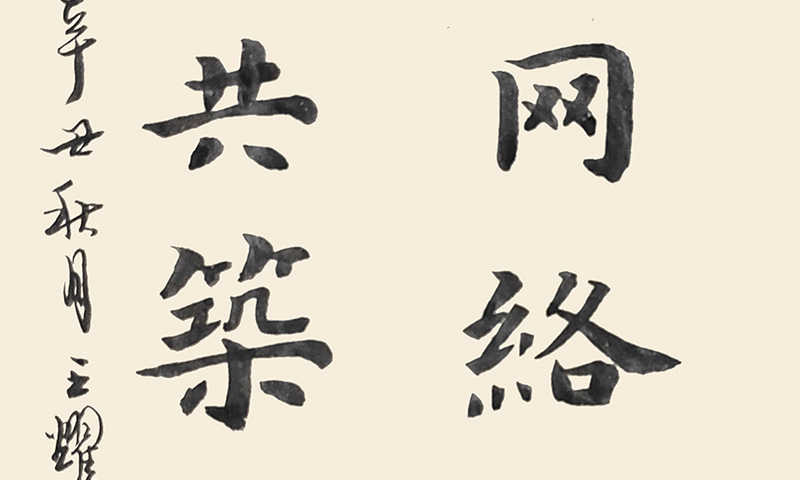 网絡
共築
辛丑秋月王耀